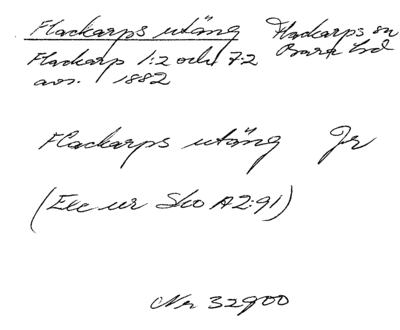 Flackarps utäng Flackarps sn
Flackarp 1:2 och 7:2 Bara hd
avs. 1882
Flackarps utäng Jr
(Exc ur Sko A2:91)
Nr 32900